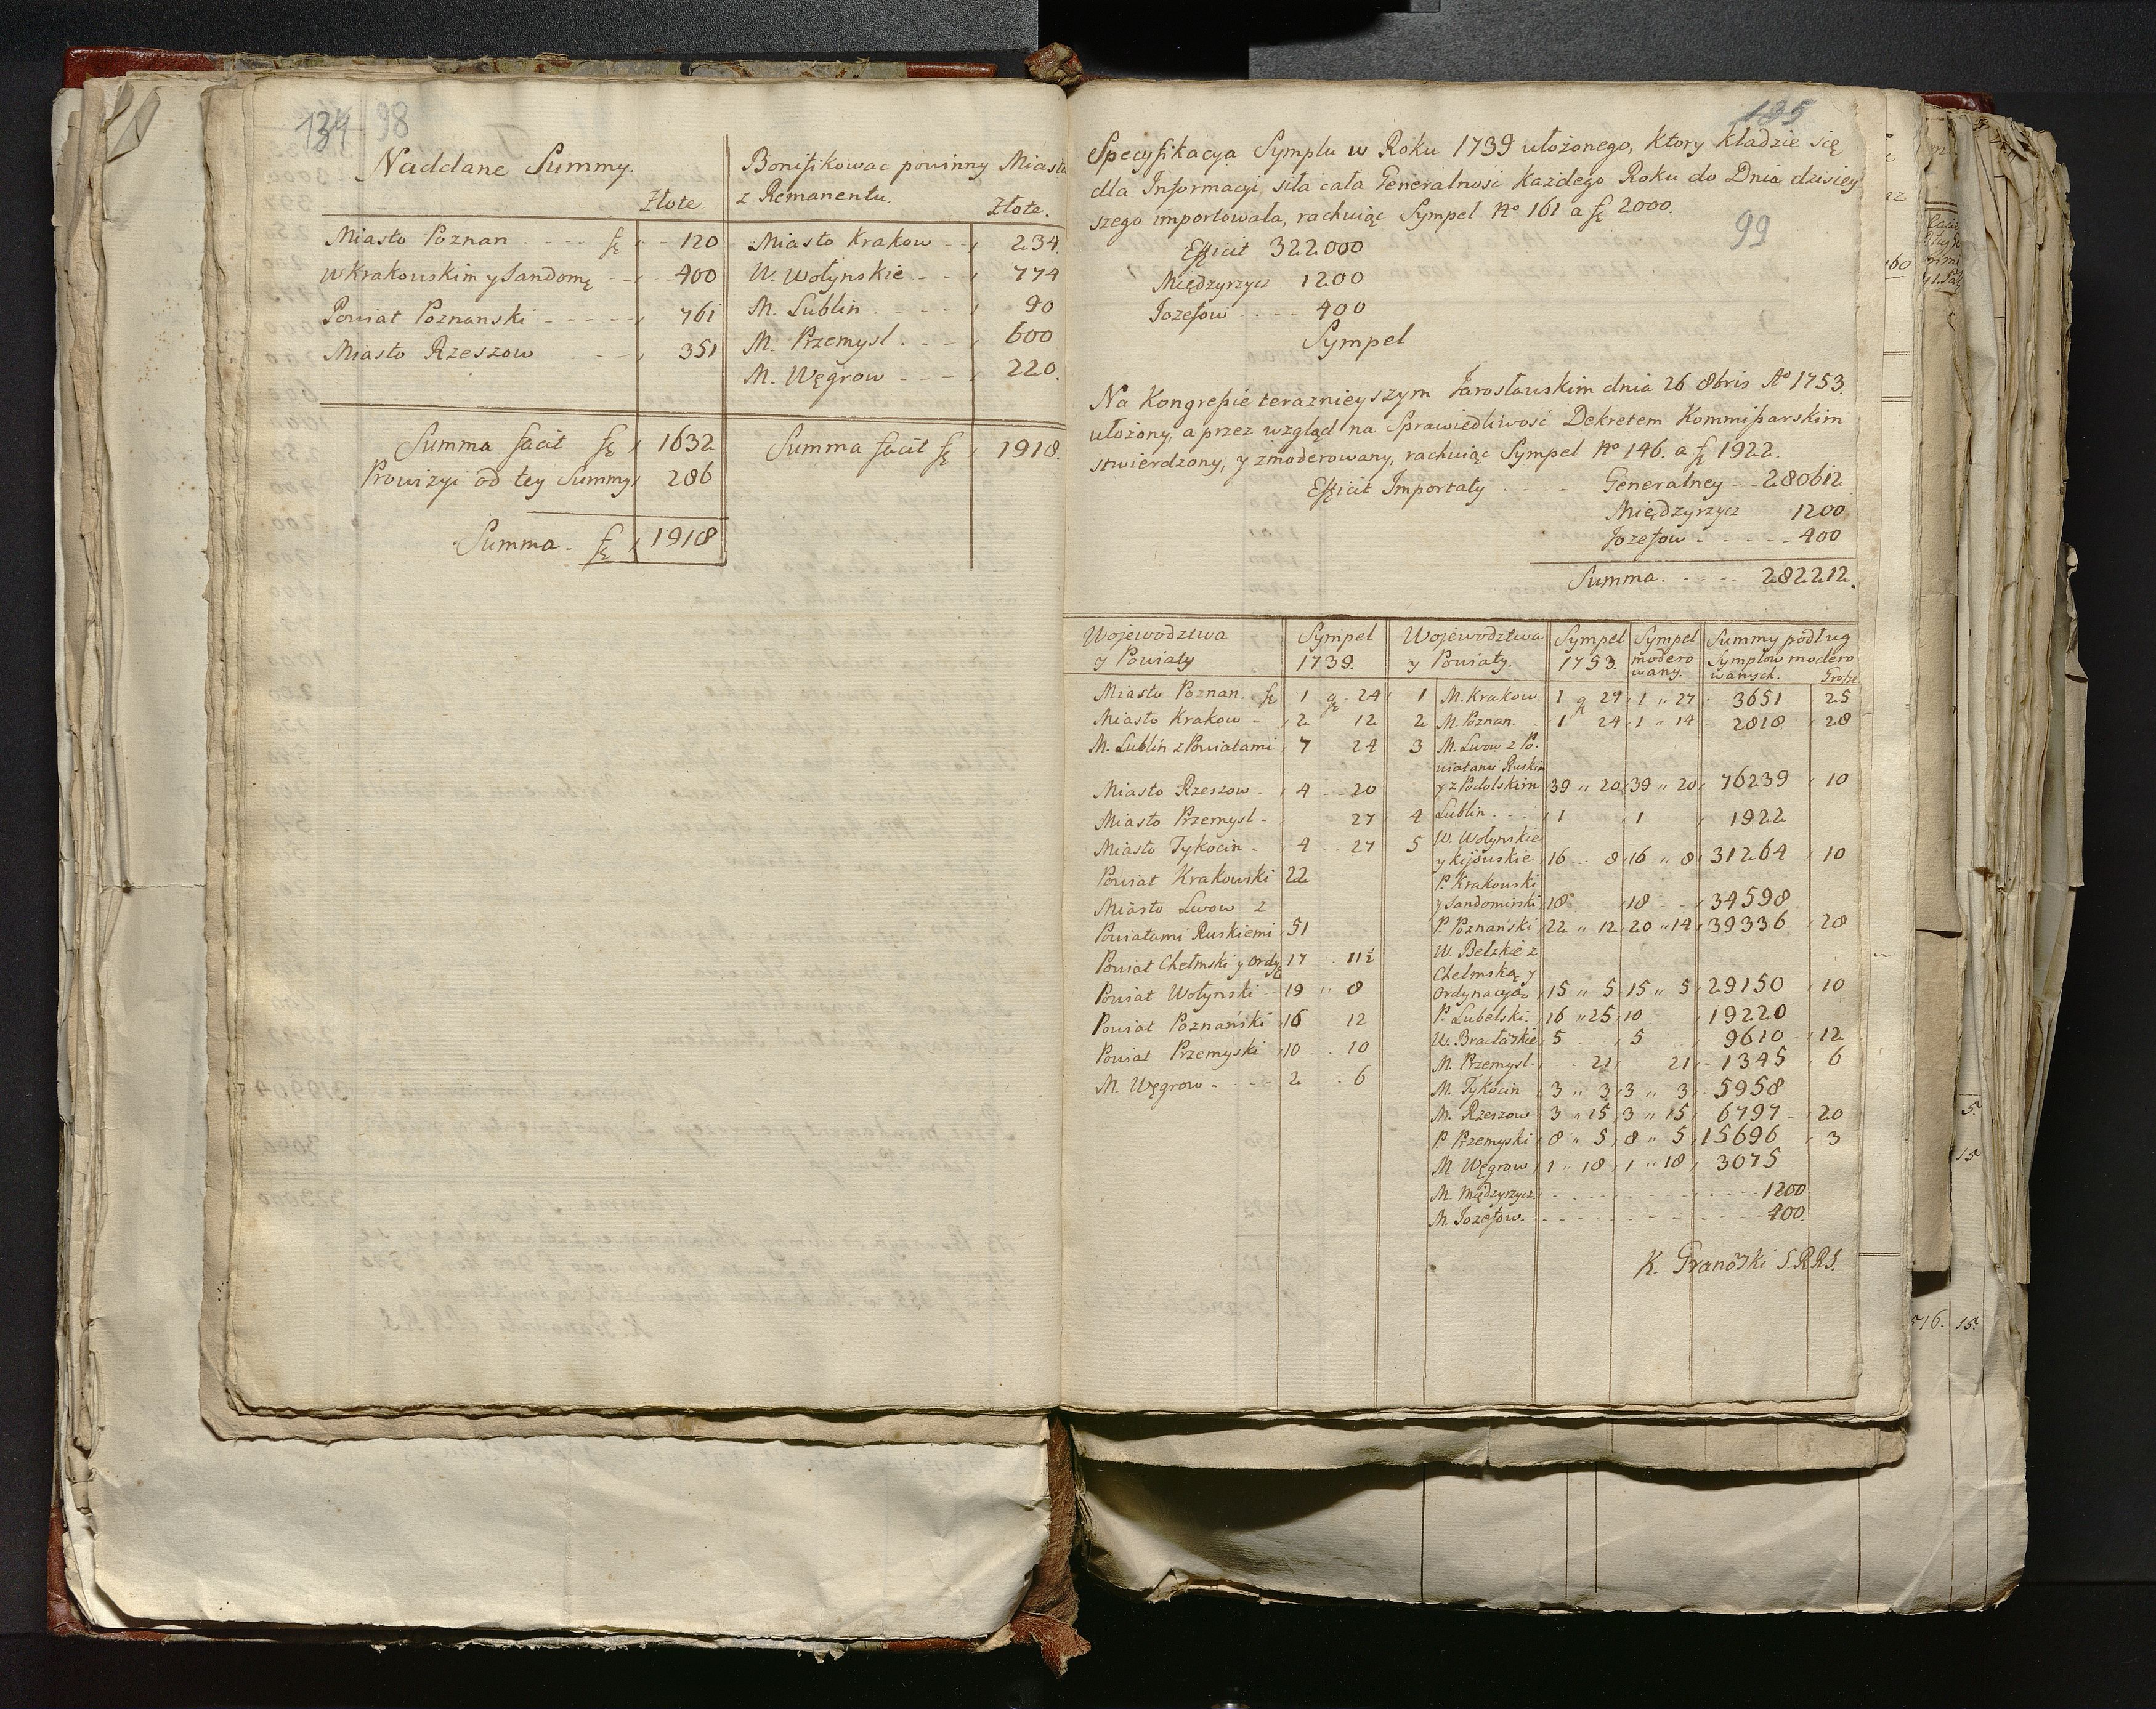 134 98
Naddane Summy.
Złote.
Miasto Poznan - - - - fl - - 120
w Krakowskim y Sandom - - 400
Powiat Poznanski - - - - - 761
Miasto Rzeszow - - - 351
Summa facit fl 1632
Prowizyi od tey Summy 286
Summa - fl 1918
Bonifikowac powinny Miasta
z Remanentu.
Złote.
Miasto Krakow - - 234
W. Wołynskie - - - 774
M. Lublin - - - - 90
M. Przemysl - - - 600
M. Węgrow - - - 220
Summa facit fl 1918.
135
Specyfikacya Symplu w Roku 1739 ułożonego, ktory kładzie się
dla Informacyi, siła cała Generalnosc każdego Roku do Dnia dzisiey
szego importowała, rachuiąc Sympel No 161 a fl 2000.
99
Efficit 322000
Międzyrzycz 1200
Jozefow - - - - 400
Sympel
Na Kongressie teraznieyszym Jarosławskim dnia 26 8bris Ao 1753.
ułożony, a przez wzgląd na Sprawiedliwosć Dekretem Kommissarskim
stwierdzony, y zmoderowany, rachuiąc Sympel No 146. a fl 1922.
Efficit Importaty - - - - Generalney - - 280612
Międzyrzycz 1200
Jozefow - - - - - 400
Summa. - - - - 282212.
Wojewodztwa Sympel Wojewodztwa Sympel Sympel Summy podług
y Powiaty 1739. y Powiaty. 1753 modero Symplow modero
wany. wanych. Grosze
Miasto Poznan. fl 1 gr 24 1 M. Krakow. 1 gr 27 1 " 27 - 3651 25
Miasto Krakow - 2 12 2 M. Poznan. - 1 24 1 " 14 2818 28
M. Lublin z Powiatami 7 24 3 M. Lwow z Po.
wiatami Ruskim
Miasto Rzeszow - 4 - 20 y z Podolskim 39 " 20 39 " 20 76239 10
Miasto Przemysl - 27 4 Lublin. - - 1 1 1922
Miasto Tykocin - 4 - 27 5 W. Wołynskie
y kijowskie 16 - 8 16 " 8 31264 10
Powiat Krakowski 22
P. Krakowski
Miasto Lwow z y Sandomirski 18 18 - 34598
Powiatami Ruskiemi 51 P. Poznański 22 " 12 20 " 14 39336 28
W. Bełzkie z
Powiat Chełmski y Ordy 17 . 11½ Chełmską y
Powiat Wołynski - 19 " 8 Ordynacya 15 " 5 15 " 5 29150 10
Powiat Poznański 16 12 P. Lubelski. 16 " 25 10 19220
W. Bracławskie 5 5 9610 12
Powiat Przemyski 10 . 10 M. Przemysl - - 21 21 - 1345 6
M. Węgrow - - - - 2 . 6 M. Tykocin 3 " 3 3 " 3 - 5958
M. Rzeszow 3 " 15 3 " 15 6797 - 20
P. Przemyski 8 " 5 8 " 5 15696 3
M. Węgrow 1 " 18 1 " 18 3075
M. Międzyrzycz - - - - - - - - - 1200
M. Jozefow. - - - - - - - - - 400.
K. Granowski S.R.R.S.